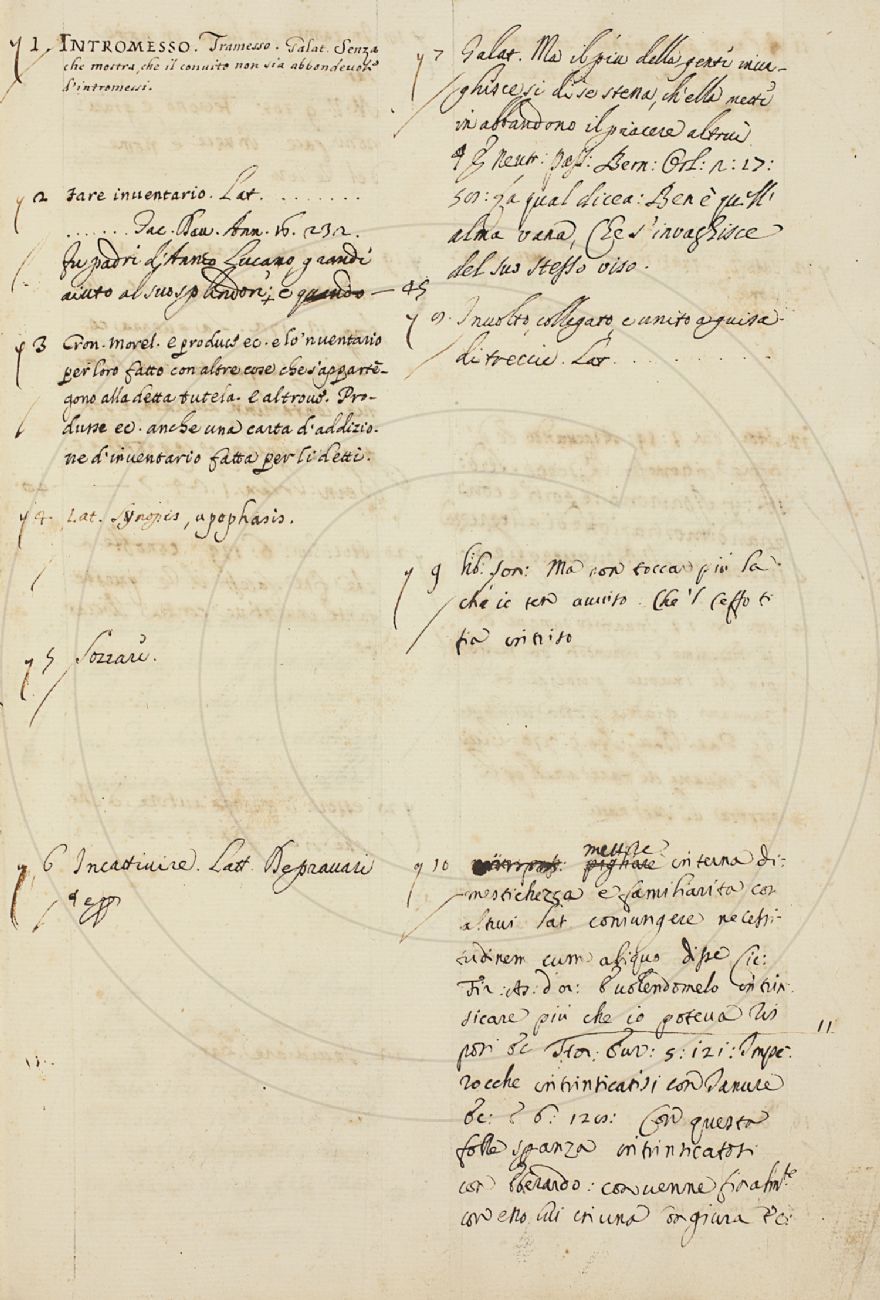 1. INTROMESSO. Tramesso. Galat. Senza
che mostra, che il conuito non sia abbondeuole
d'intromessi.
2 Fare inuentario. Lat. . . . . . . . .
. . . . . . . Tac. Dau. Ann. 16. 232.
fu padri d'Anneo Lucano grandi
aiuto al suo splendore; e quando — 45
3 Cron. Morel. e produce ec. e lo 'nuentario
per loro fatto con altre cose che s'apparte-
gono alla detta tutela. E altroue. Pro-
dusse ec. anche una carta d'addizio-
ne d'inuentario fatta per li detti.
4. Lat. synopsis, apophasis.
5 Sozzare.
6 Incattiuire. Latt. Deprauari
7 Galat. Ma il piu della gente inua-
ghisce si di se stessa, ch'ella mette
in abbandono il piacere altrui
neutr: pass: Bern: Orl: 2: 17:
50: La qual dicea: Ben è quell'
alma vana, Che s'inuaghisce
del suo stesso viso.
8. Inuolto, collegato, e unito a guisa
di treccie. Lat. . . . . . . . . . .
9 lib. son: Ma non toccar più la
che io ten auuiso. Che 'l ceffo ti
fia intriso
10 mettere
pigliare interna di-
mestichezza e familiarita con
altrui lat coniungere necessi-
tudinem cum aliquo disse Cic:
Fir: As: d'or: uolendomelo intrin-
sicare più che io poteua 11
Stor: Eur: 5: 121: Impe-
rocche intrinsicatisi con
&c: E 6: 120: Con questa
folle speranza intrinsicatosi
con Berardo: conuenne finalmte
con esso lui in una congiura &c: